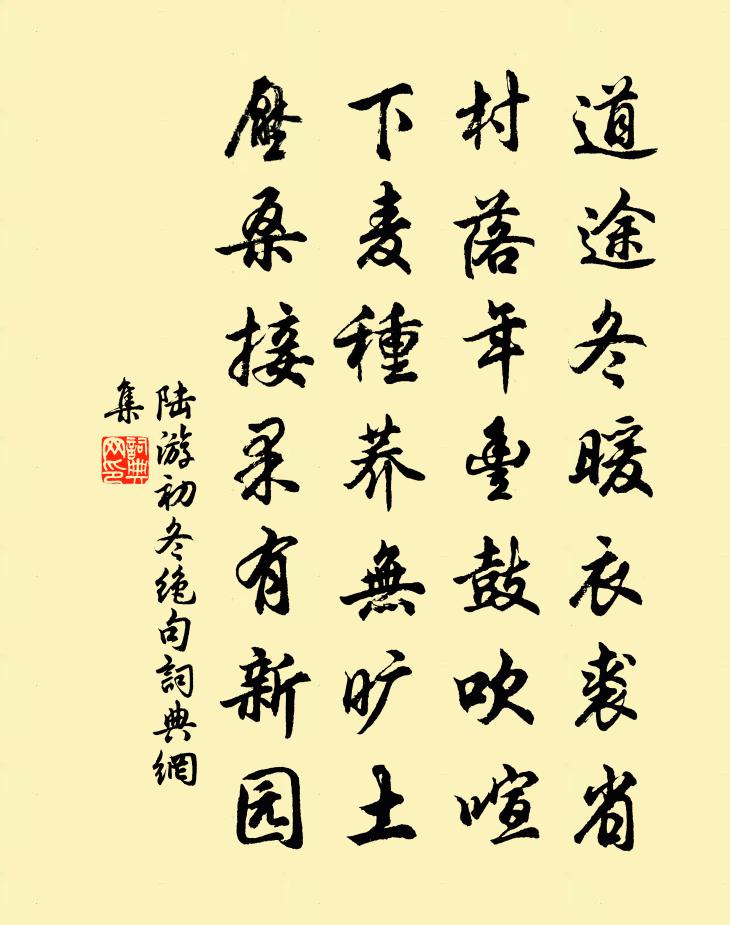 道途冬暖衣裘省
村落年豊鼓吹喧
下麦種荞無旷土
壓桑接果有新园
陆游初冬绝句詞典網
集
詞典网印